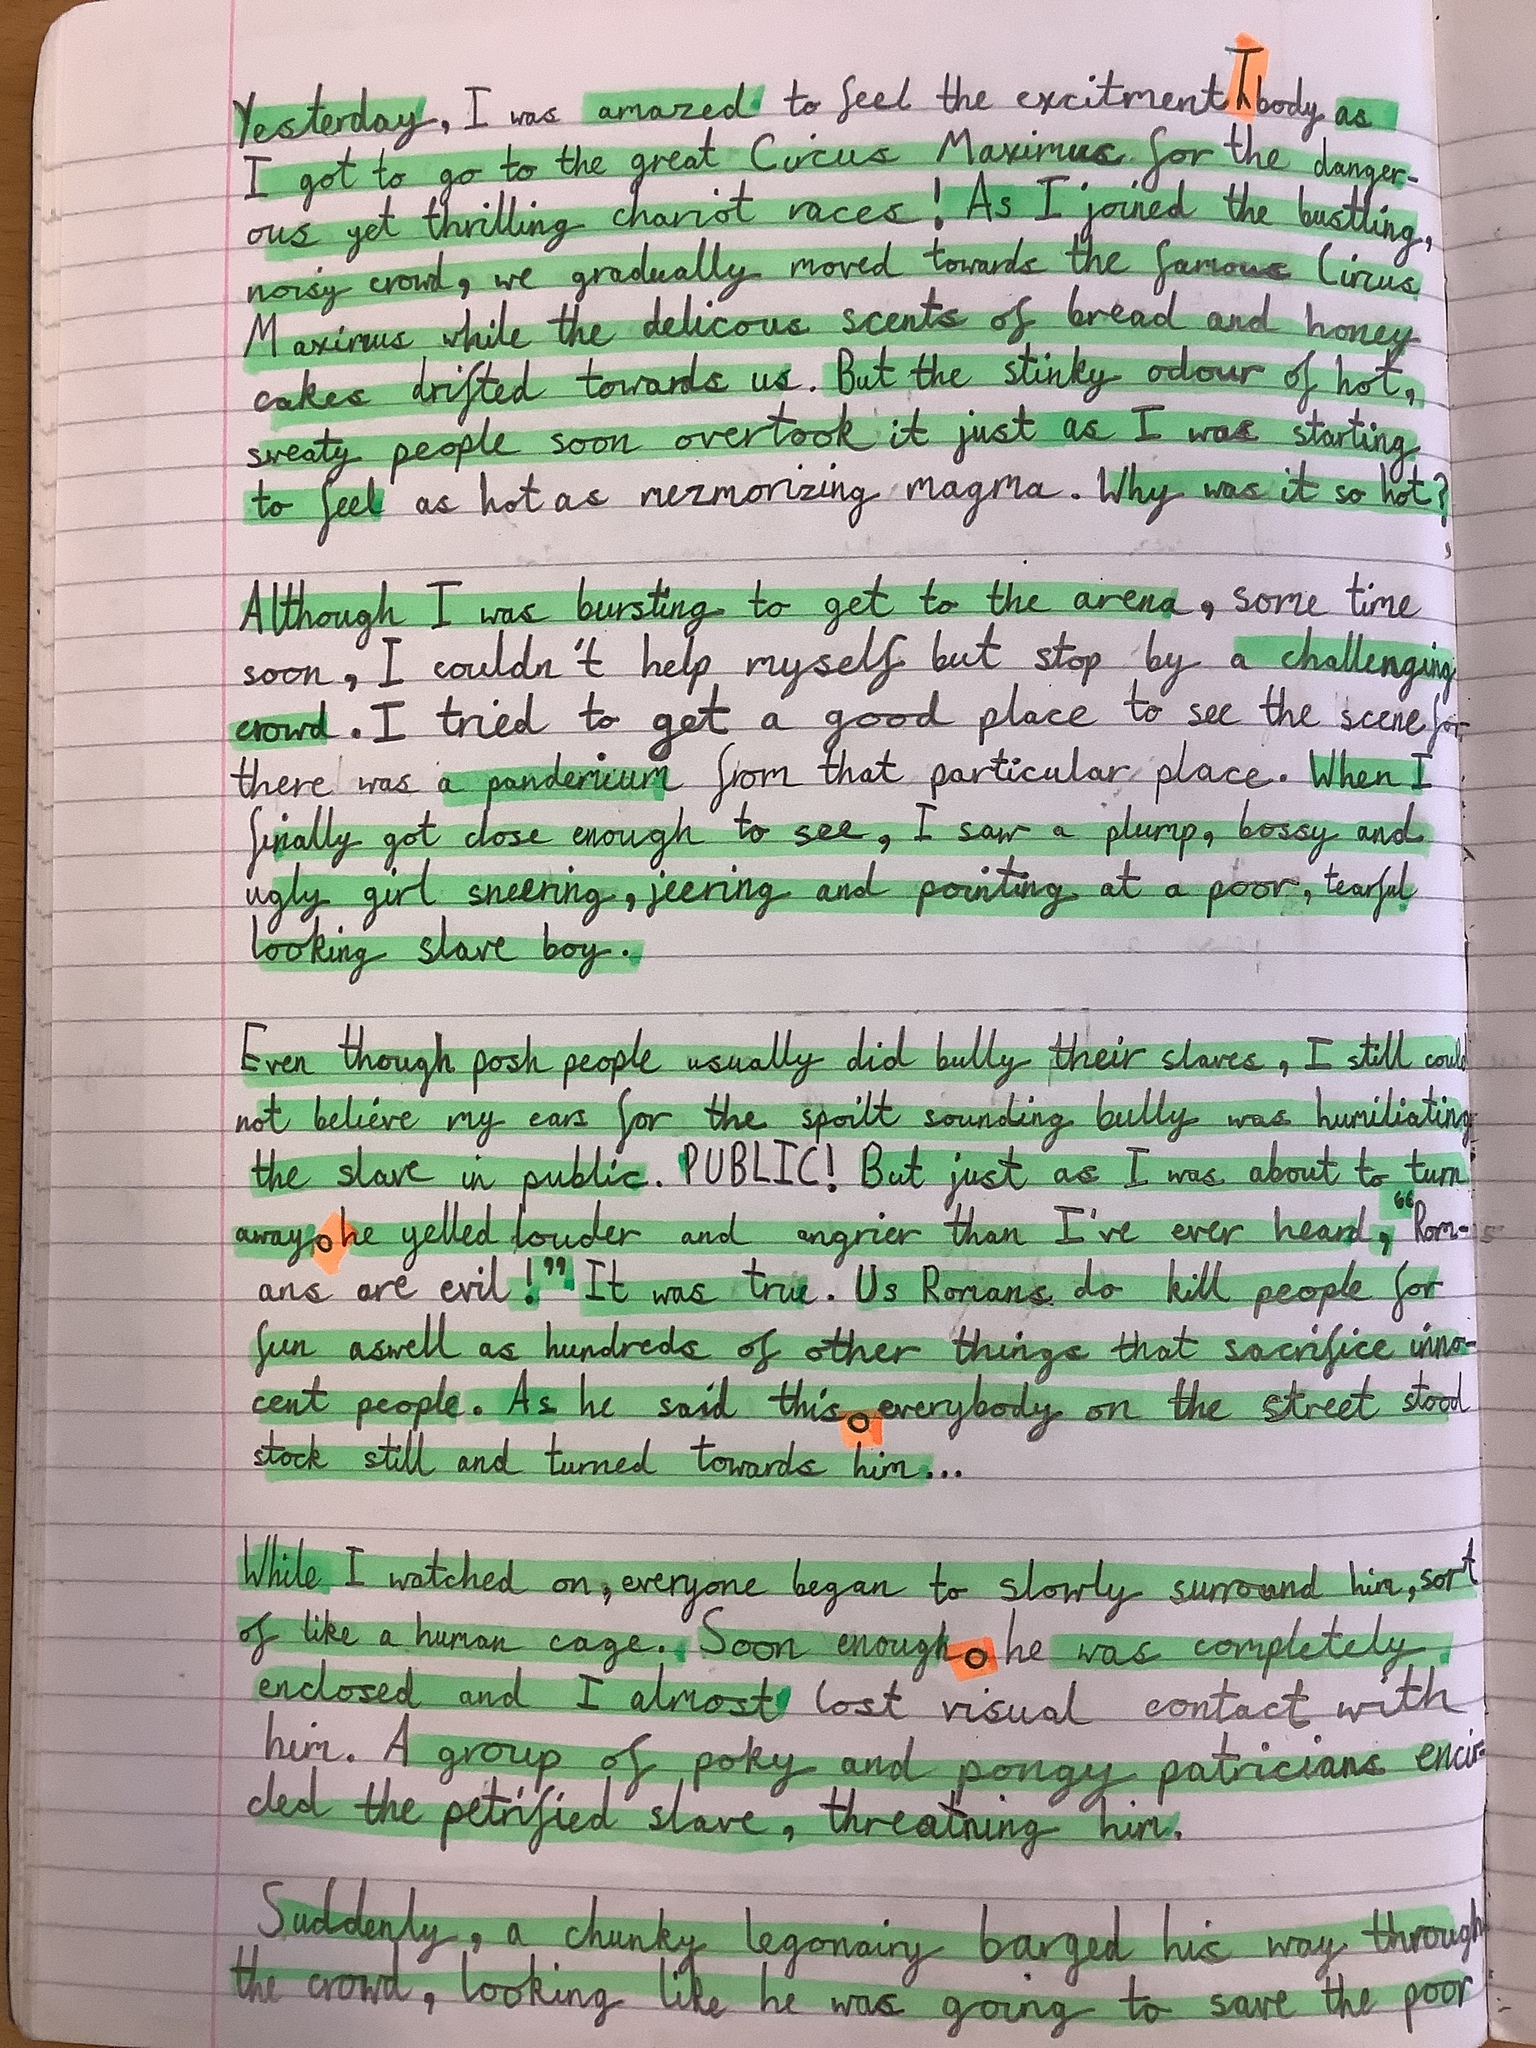 Yesterday, I was amazed to feel the excitment body as
I got to go to the great Circus Maximus for the danger-
ous yet thrilling chariot races! As I joined the bustling,
noisy crowd, we gradually moved towards the famous Circus
Maximus while the delicous scents of bread and honey
cakes drifted towards us. But the stinky odour of hot,
sweaty people soon overtook it just as I was starting
to feel as hot as mezmorizing magma. Why was it so hot?
Although I was bursting to get to the arena, some time
soon, I couldn't help myself but stop by a challenging
crowd. I tried to get a good place to see the scene for
there was a pandemium from that particular place. When I
finally got close enough to see, I saw a plump, bossy and
ugly girl sneering, jeering and pointing at a poor, tearful
looking slave boy.
Even though posh people usually did bully their slaves, I still could
not believe my ears for the spoilt sounding bully was humiliating
the slave in public. PUBLIC! But just as I was about to turn
away he yelled louder and angrier than I've ever heard, "Rom-
ans are evil!" It was true. Us Romans do kill people for
fun aswell as hundreds of other things that sacrifice inno-
cent people. As he said this everybody on the street stood
stock still and turned towards him...
While I watched on, everyone began to slowly surround him, sort
of like a human cage. Soon enough he was completely
enclosed and I almost lost visual contact with
him. A group of poky and pongy patricians encir-
cled the petrified slave, threatning him.
Suddenly, a chunky legonairy barged his way through
the crowd, looking like he was going to save the poor